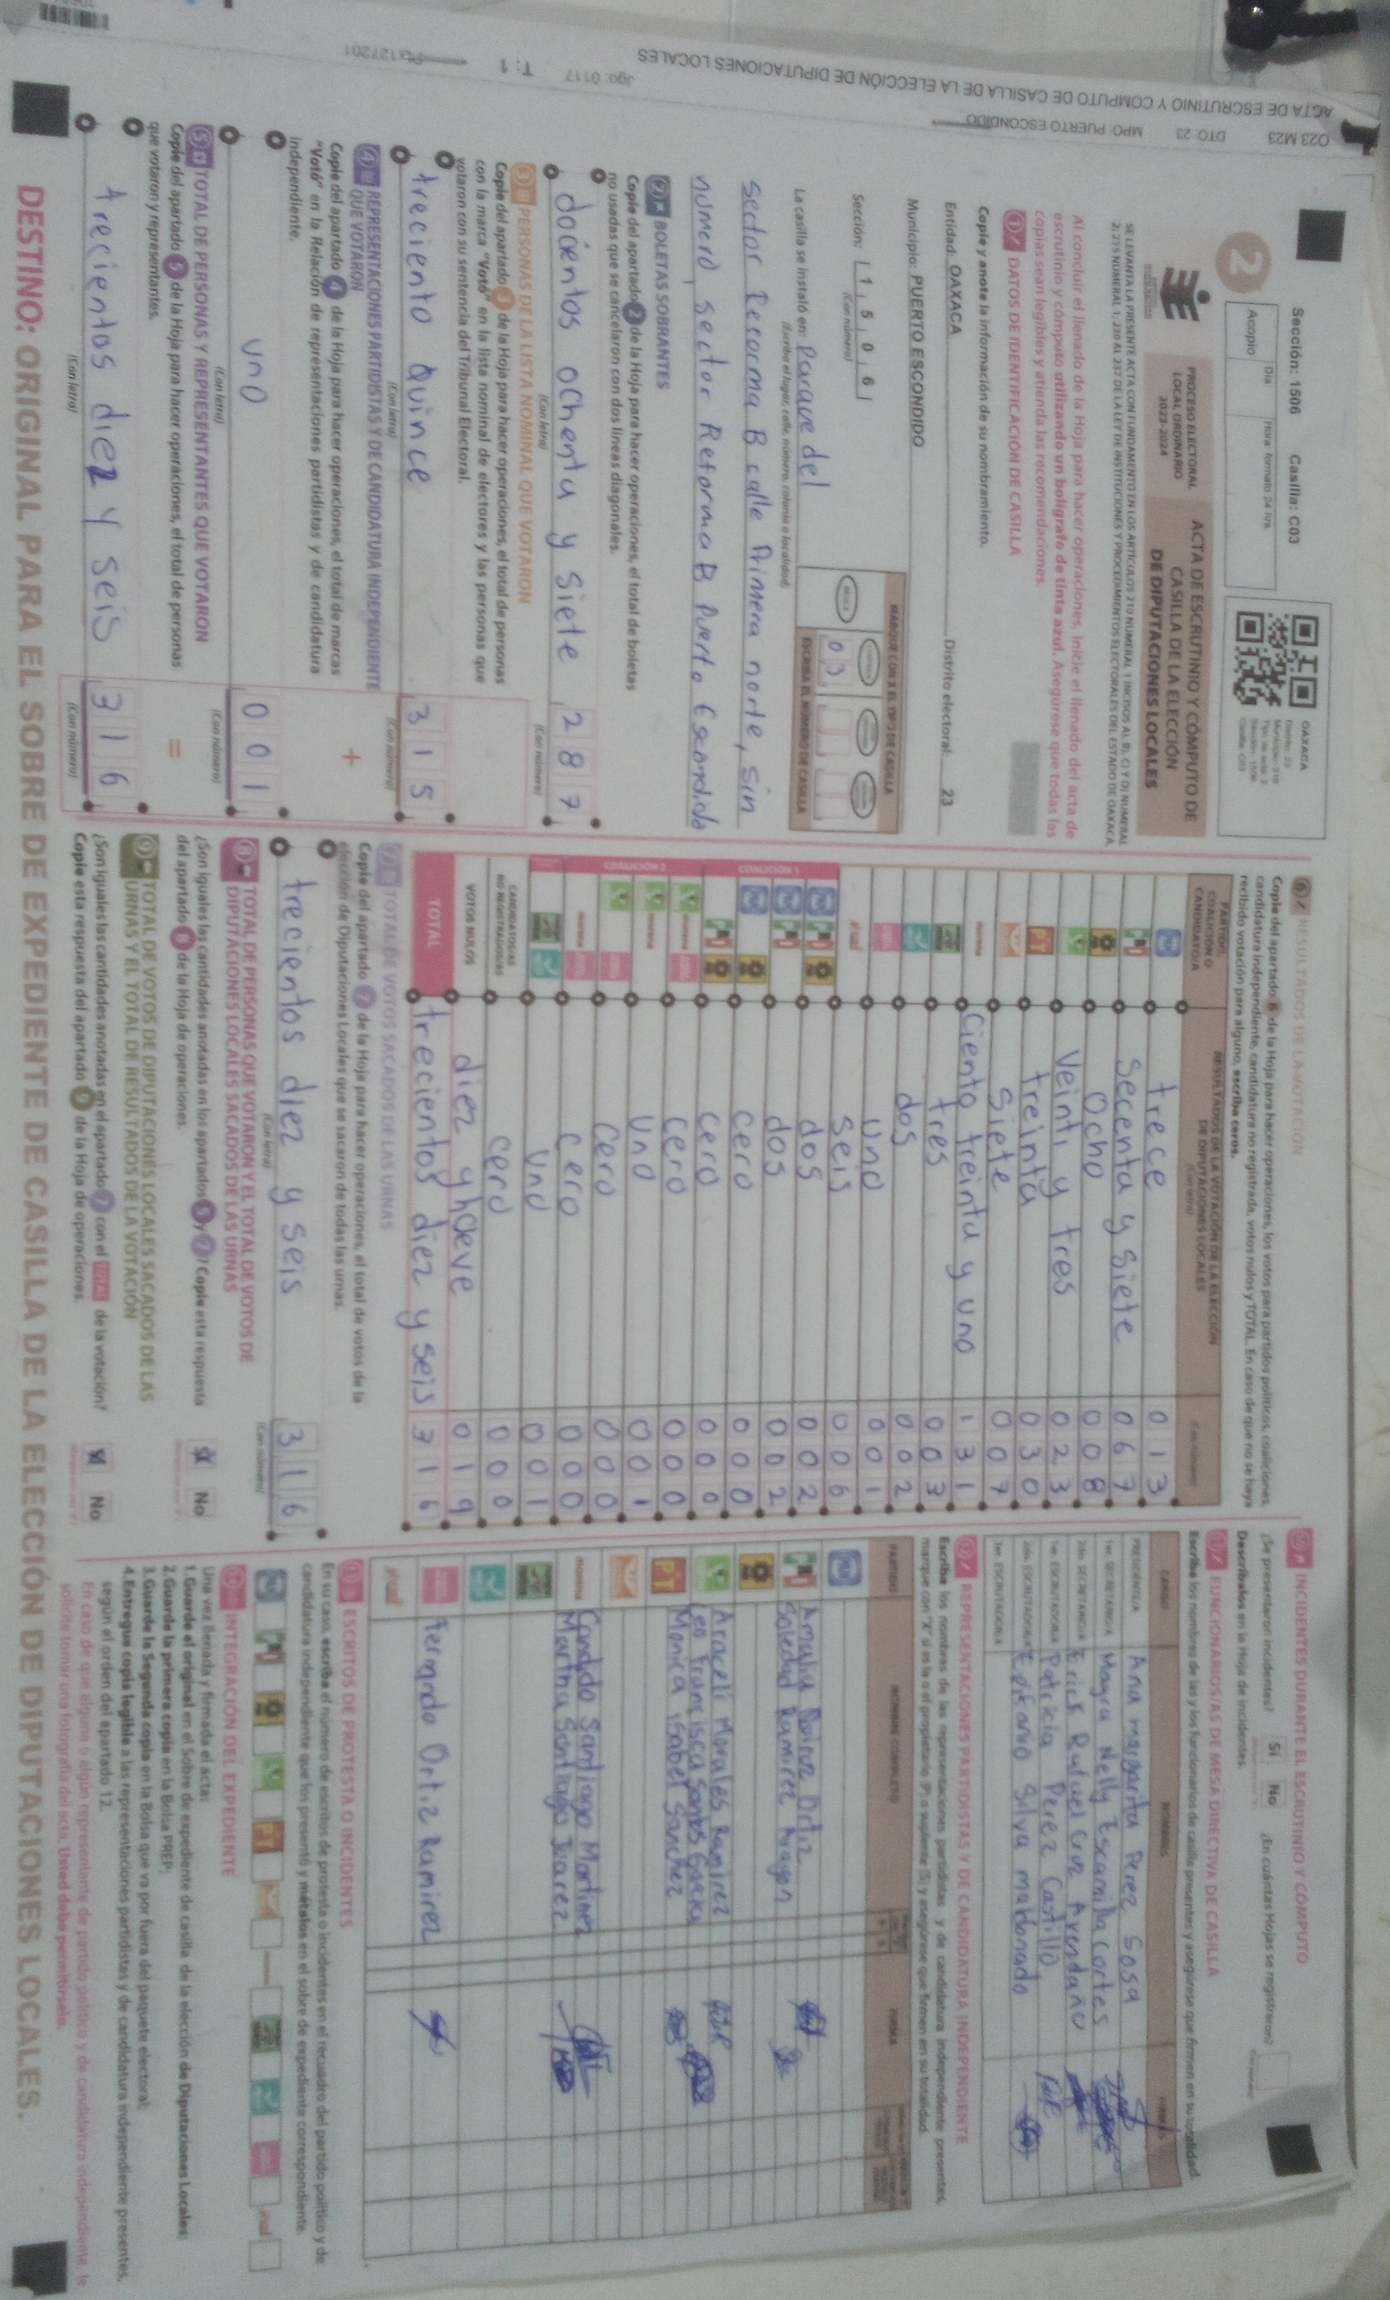 O23 M23 DTO: 23 MPO: PUERTO ESCONDIDO
ACTA DE ESCRUTINIO Y CÓMPUTO DE CASILLA DE LA ELECCIÓN DE DIPUTACIONES LOCALES
Jgo: 0117 T: 1
Sección: 1506 Casilla: C03
2
Día
Hora formato 24 hrs
Acopio
OAXACA
PROCESO ELECTORAL
LOCAL ORDINARIO
2023-2024
ACTA DE ESCRUTINIO Y CÓMPUTO DE
CASILLA DE LA ELECCIÓN
DE DIPUTACIONES LOCALES
Al concluir el llenado de la Hoja para hacer operaciones, inicie el llenado del acta de
escrutinio y cómputo utilizando un bolígrafo de tinta azul. Asegúrese que todas las
copias sean legibles y atienda las recomendaciones.
1 DATOS DE IDENTIFICACIÓN DE CASILLA
Copie y anote la información de su nombramiento.
Entidad: OAXACA Distrito electoral: 23
Municipio: PUERTO ESCONDIDO
Sección: 1 5 0 6
(Con número)
MARQUE CON X EL TIPO DE CASILLA
ESCRIBA EL NÚMERO DE CASILLA
0 3
La casilla se instaló en: Parave del
sector Reforma B calle Primera norte, sin
numero, sector Reforma B Puerto Escondido
2 BOLETAS SOBRANTES
Copie del apartado 2 de la Hoja para hacer operaciones, el total de boletas
no usadas que se cancelaron con dos líneas diagonales.
docentos ochenta y siete 287
(Con letra) (Con número)
3 PERSONAS DE LA LISTA NOMINAL QUE VOTARON
Copie del apartado 3 de la Hoja para hacer operaciones, el total de personas
con la marca "Votó" en la lista nominal de electores y las personas que
votaron con su sentencia del Tribunal Electoral.
treciento Quince 315
(Con letra) (Con número)
4 REPRESENTACIONES PARTIDISTAS Y DE CANDIDATURA INDEPENDIENTE
QUE VOTARON
Copie del apartado 4 de la Hoja para hacer operaciones, el total de marcas
"Votó" en la Relación de representaciones partidistas y de candidatura
independiente.
+
uno 001
(Con letra) (Con número)
5 TOTAL DE PERSONAS Y REPRESENTANTES QUE VOTARON
Copie del apartado 5 de la Hoja para hacer operaciones, el total de personas
que votaron y representantes.
=
trecientos diez y seis 316
(Con letra) (Con número)
6 RESULTADOS DE LA VOTACIÓN
Copie del apartado 6 de la Hoja para hacer operaciones, los votos para partidos políticos, coaliciones,
candidatura independiente, candidatura no registrada, votos nulos y TOTAL. En caso de que no se haya
recibido votación para alguno, escriba ceros.
PARTIDO,
COALICIÓN O
CANDIDATO/A
RESULTADOS DE LA VOTACIÓN DE LA ELECCIÓN
DE DIPUTACIONES LOCALES
trece 013
Secenta y siete 067
Ocho 008
Veinti y tres 023
PT treinta 030
siete 007
Ciento treinta y uno 131
tres 003
dos 002
uno 001
seis 006
COALICIÓN 1
dos 002
dos 002
cero 000
cero 000
COALICIÓN 2
cero 000
uno 001
cero 000
cero 000
uno 001
CANDIDATOS/AS
NO REGISTRADOS/AS
cero 000
VOTOS NULOS diez y nueve 019
TOTAL trecientos diez y seis 316
7 TOTAL DE VOTOS SACADOS DE LAS URNAS
Copie del apartado 7 de la Hoja para hacer operaciones, el total de votos de la
elección de Diputaciones Locales que se sacaron de todas las urnas.
trecientos diez y seis 316
(Con letra) (Con número)
8 TOTAL DE PERSONAS QUE VOTARON Y EL TOTAL DE VOTOS DE
DIPUTACIONES LOCALES SACADOS DE LAS URNAS
¿Son iguales las cantidades anotadas en los apartados 5 y 7? Copie esta respuesta
del apartado 8 de la Hoja de operaciones.
Sí No
9 TOTAL DE VOTOS DE DIPUTACIONES LOCALES SACADOS DE LAS
URNAS Y EL TOTAL DE RESULTADOS DE LA VOTACIÓN
¿Son iguales las cantidades anotadas en el apartado 7 con el TOTAL de la votación?
Copie esta respuesta del apartado 9 de la Hoja de operaciones.
Sí No
10 INCIDENTES DURANTE EL ESCRUTINIO Y CÓMPUTO
¿Se presentaron incidentes? Sí No ¿En cuántas Hojas se registraron?
Descríbalos en la Hoja de incidentes.
11 FUNCIONARIOS/AS DE MESA DIRECTIVA DE CASILLA
Escriba los nombres de las y los funcionarios de casilla presentes y asegúrese que firmen en su totalidad.
CARGO NOMBRES FIRMAS
PRESIDENTE/A Ana margarita Perez Sosa
1er. SECRETARIO/A Mayra Nelly Escamilla Cortes
2do. SECRETARIO/A Erick Rafael Cruz Avendaño
1er. ESCRUTADOR/A Patricia Perez Castillo
2do. ESCRUTADOR/A Epifanio Silva maldonado
3er. ESCRUTADOR/A
12 REPRESENTACIONES PARTIDISTAS Y DE CANDIDATURA INDEPENDIENTE
Escriba los nombres de las representaciones partidistas y de candidatura independiente presentes,
marque con "X" si es la o el propietario (P) o suplente (S) y asegúrese que firmen en su totalidad.
PARTIDO NOMBRE COMPLETO FIRMA
Soledad Ramirez Aragon
Araceli Morales Ramirez
PT Monica Isabel Sanchez
Candido Santiago Martinez
Martha Santiago Juarez
Fernando Ortiz Ramirez
13 ESCRITOS DE PROTESTA O INCIDENTES
En su caso, escriba el número de escritos de protesta o incidentes en el recuadro del partido político y de
candidatura independiente que los presentó y métalos en el sobre de expediente correspondiente.
PT
14 INTEGRACIÓN DEL EXPEDIENTE
Una vez llenada y firmada el acta:
1. Guarde el original en el Sobre de expediente de casilla de la elección de Diputaciones Locales;
2. Guarde la primera copia en la Bolsa PREP;
3. Guarde la Segunda copia en la Bolsa que va por fuera del paquete electoral;
4. Entregue copia legible a las representaciones partidistas y de candidatura independiente presentes,
según el orden del apartado 12.
En caso de que alguna o algún representante de partido político y de candidatura independiente, le
solicite tomar una fotografía del acta, Usted debe permitírselo.
DESTINO: ORIGINAL PARA EL SOBRE DE EXPEDIENTE DE CASILLA DE LA ELECCIÓN DE DIPUTACIONES LOCALES.